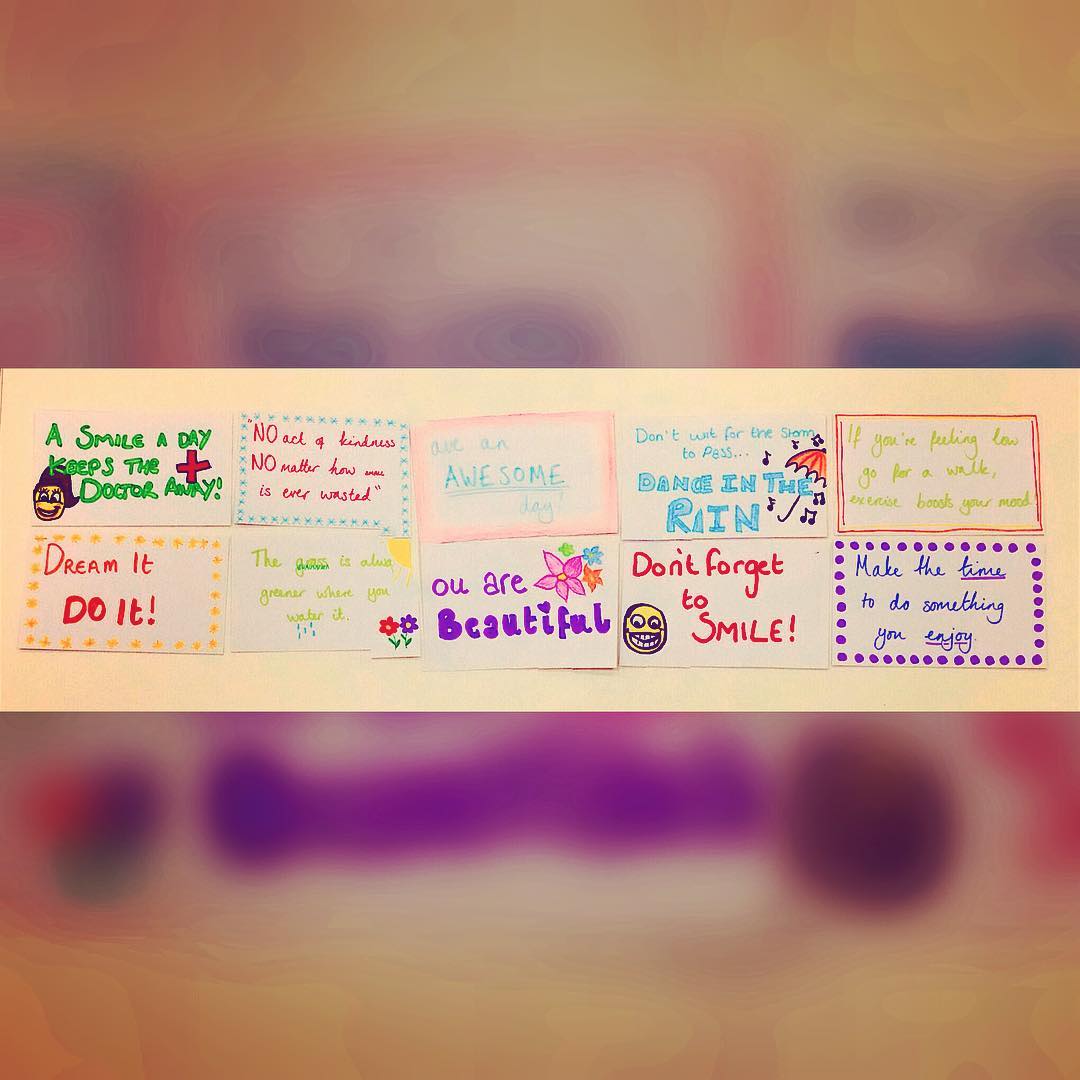 A SMILE A DAY
KEEPS THE
DOCTOR AWAY!
"NO act of kindness
NO matter how small
is ever wasted"
ave an
AWESOME
day!
Don't wit for the storm
to Pass...
DANCE IN THE
RAIN
If you're feeling low
go for a walk,
exercise boosts your mood
DREAM IT
DO It!
The grass is alwa
greener where you
water it.
ou are
Beautiful
Don't forget
to
SMILE!
Make the time
to do something
you enjoy.